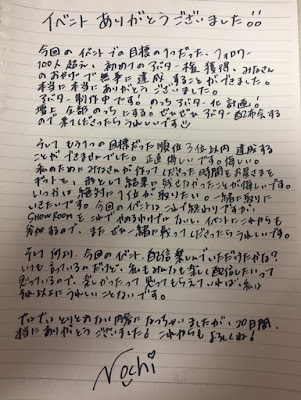 イベントありがとうございました!!
今回のイベントの目標の1つだった、フォロワー
100人超え、初めてのアバター権獲得、みなさん
のおかげで無事に達成することができました。
本当に本当にありがとうございました。
アバター制作中です。のっちアバター化計画。
壇上全部のっちにする。ぜひぜひアバター配布会する
ので来てくださったらうれしいです
そしてもう1つの目標だった順位3位以内達成する
ことができませんでした。正直悔しいです。悔しい。
私のためにみなさんが作ってくださった時間とお星さまを
ギフトを、形として結果に残せなかったことが悔しいです。
いつかは絶対に1位とりたい。一緒に取りに
いきたいです。今回のイベントはこれで終わりですが、
SHOWROOMをこれでやめるわけではないしイベントこれからも
参加するので、またぜひ一緒に戦ってくださったらうれしいです。
そして何より、今回のイベント、配信楽しんでいただけたかな?
いつも言っているのだけど、私もみんなも楽しく配信したいって
思っているので、楽しかったって思ってもらえていれば、私は
それ以上にうれしいことないです。
だいぶとりとめない内容になっちゃいましたが、20日間、
本当にありがとうございました!これからもよろしくね!
Nochi